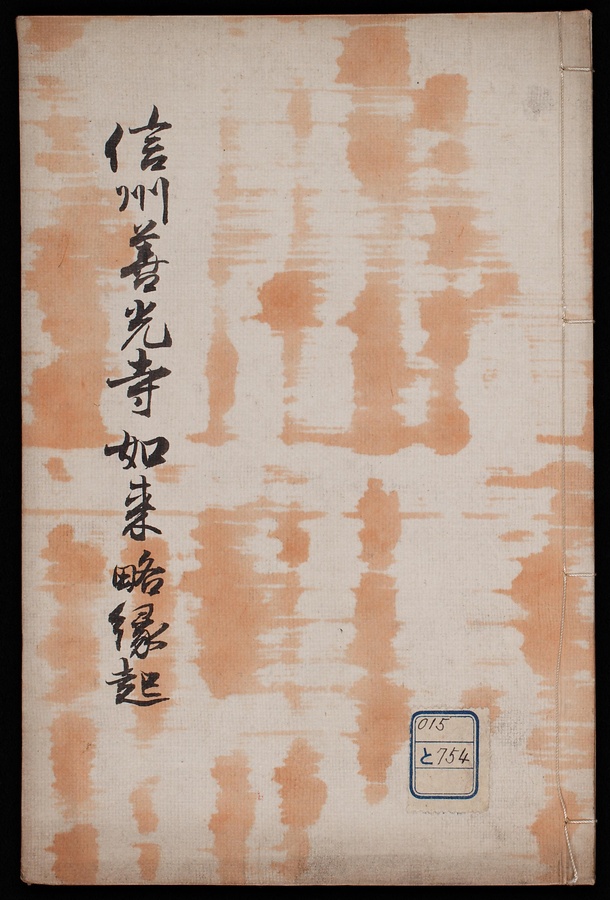 信州善光寺如来略縁起
015
と754